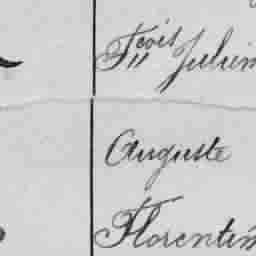 Fçois Julien
Auguste
Florentin